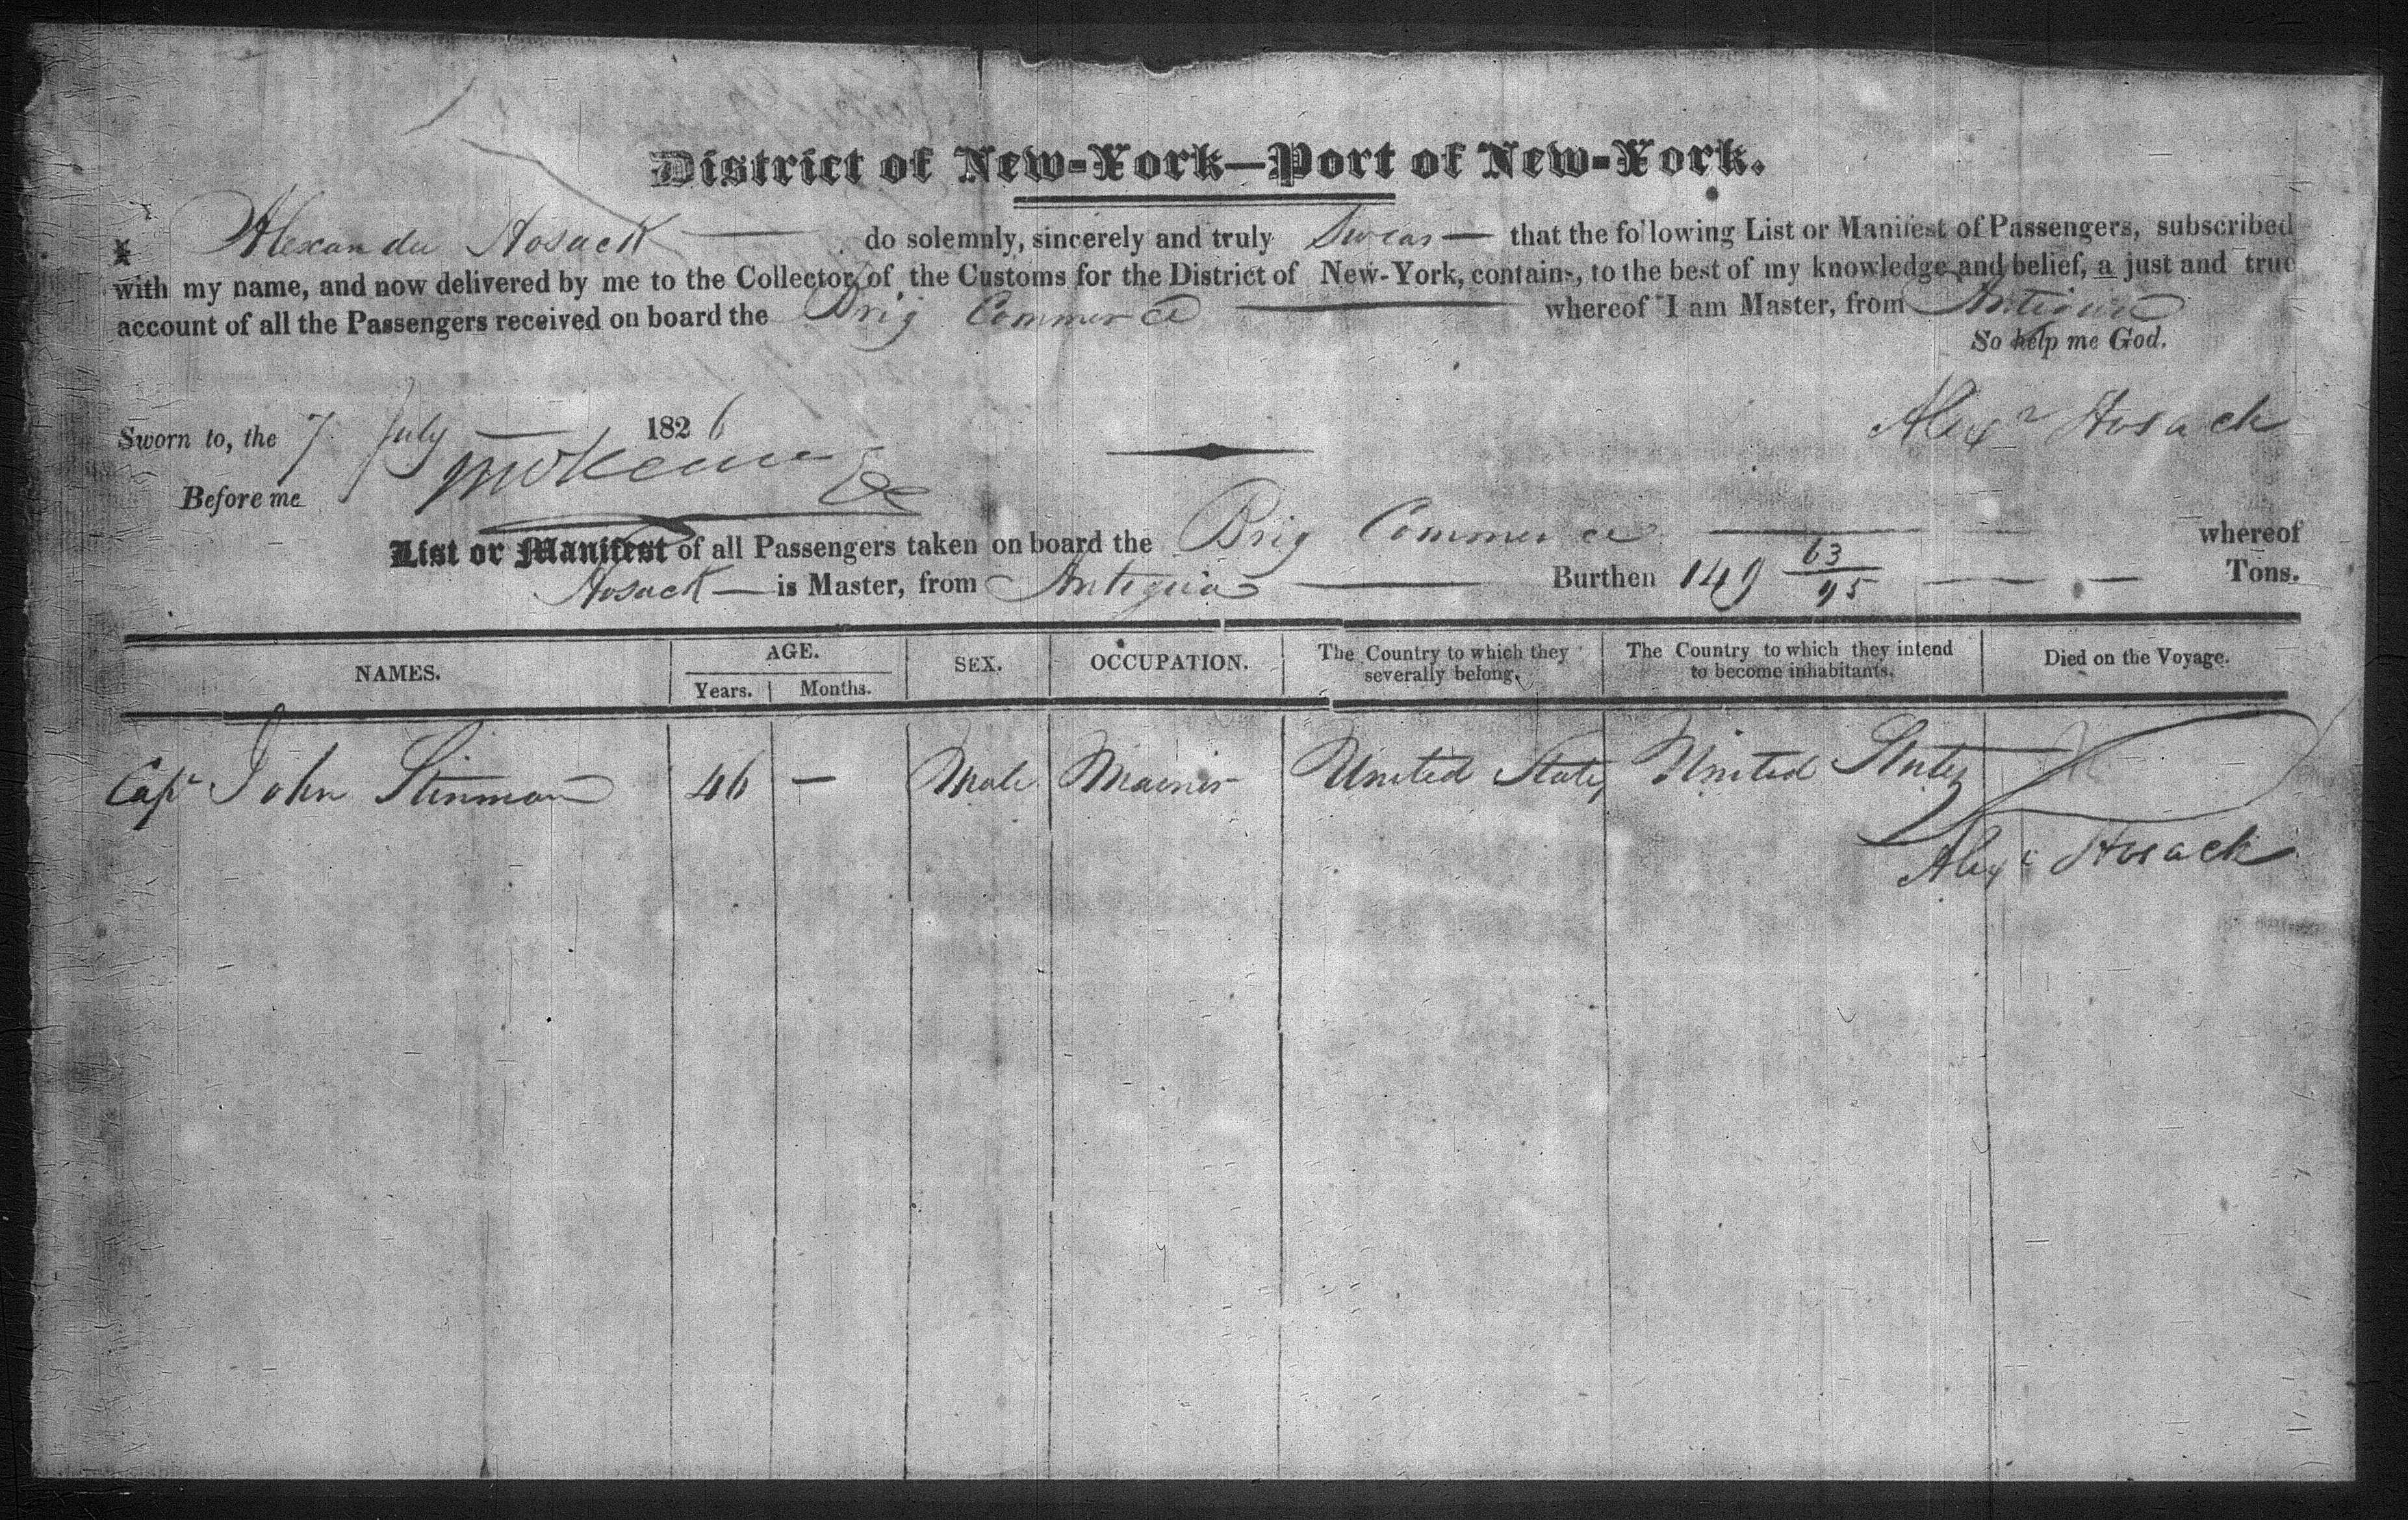 District of New-York—Port of New-York.
I, Alexander Hosack — do solemnly, sincerely and truly Swear — that the following List or Manifest of Passengers, subscribed
with my name, and now delivered by me to the Collector of the Customs for the District of New-York, contains, to the best of my knowledge and belief, a just and true
account of all the Passengers received on board the Brig Commerce — whereof I am Master, from Antigua
So help me God.
Sworn to, the 7 July — 1826 Alexr Hosack
Before me
List or Manifest of all Passengers taken on board the Brig Commerce — whereof
Hosack — is Master, from Antigua — Burthen 149 63/95 — Tons.
NAMES. AGE. SEX. OCCUPATION. The Country to which they severally belong. The Country to which they intend to become inhabitants. Died on the Voyage.
Years. Months.
Capt John Stinman 46 — Male Marinir United States United States
Alexr Hosack